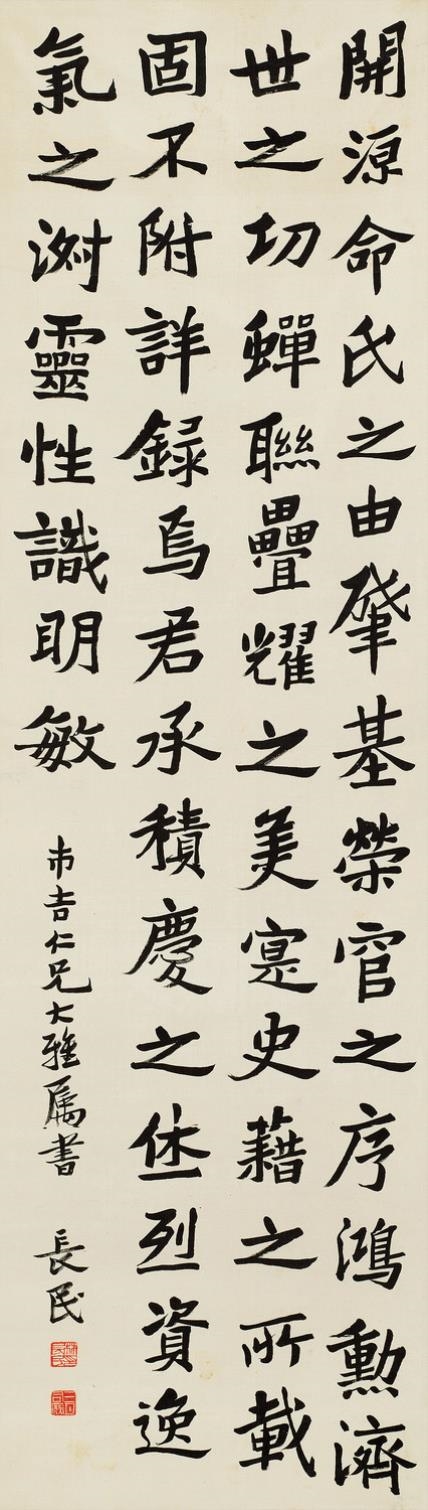 開源命氏之由肇基榮官之序鴻勳濟
世之功蟬聯疊耀之美寔史藉之所載
固不附詳錄焉君承積慶之休烈資逸
氣之淑靈性識明敏
市吉仁兄大雅属書
長民